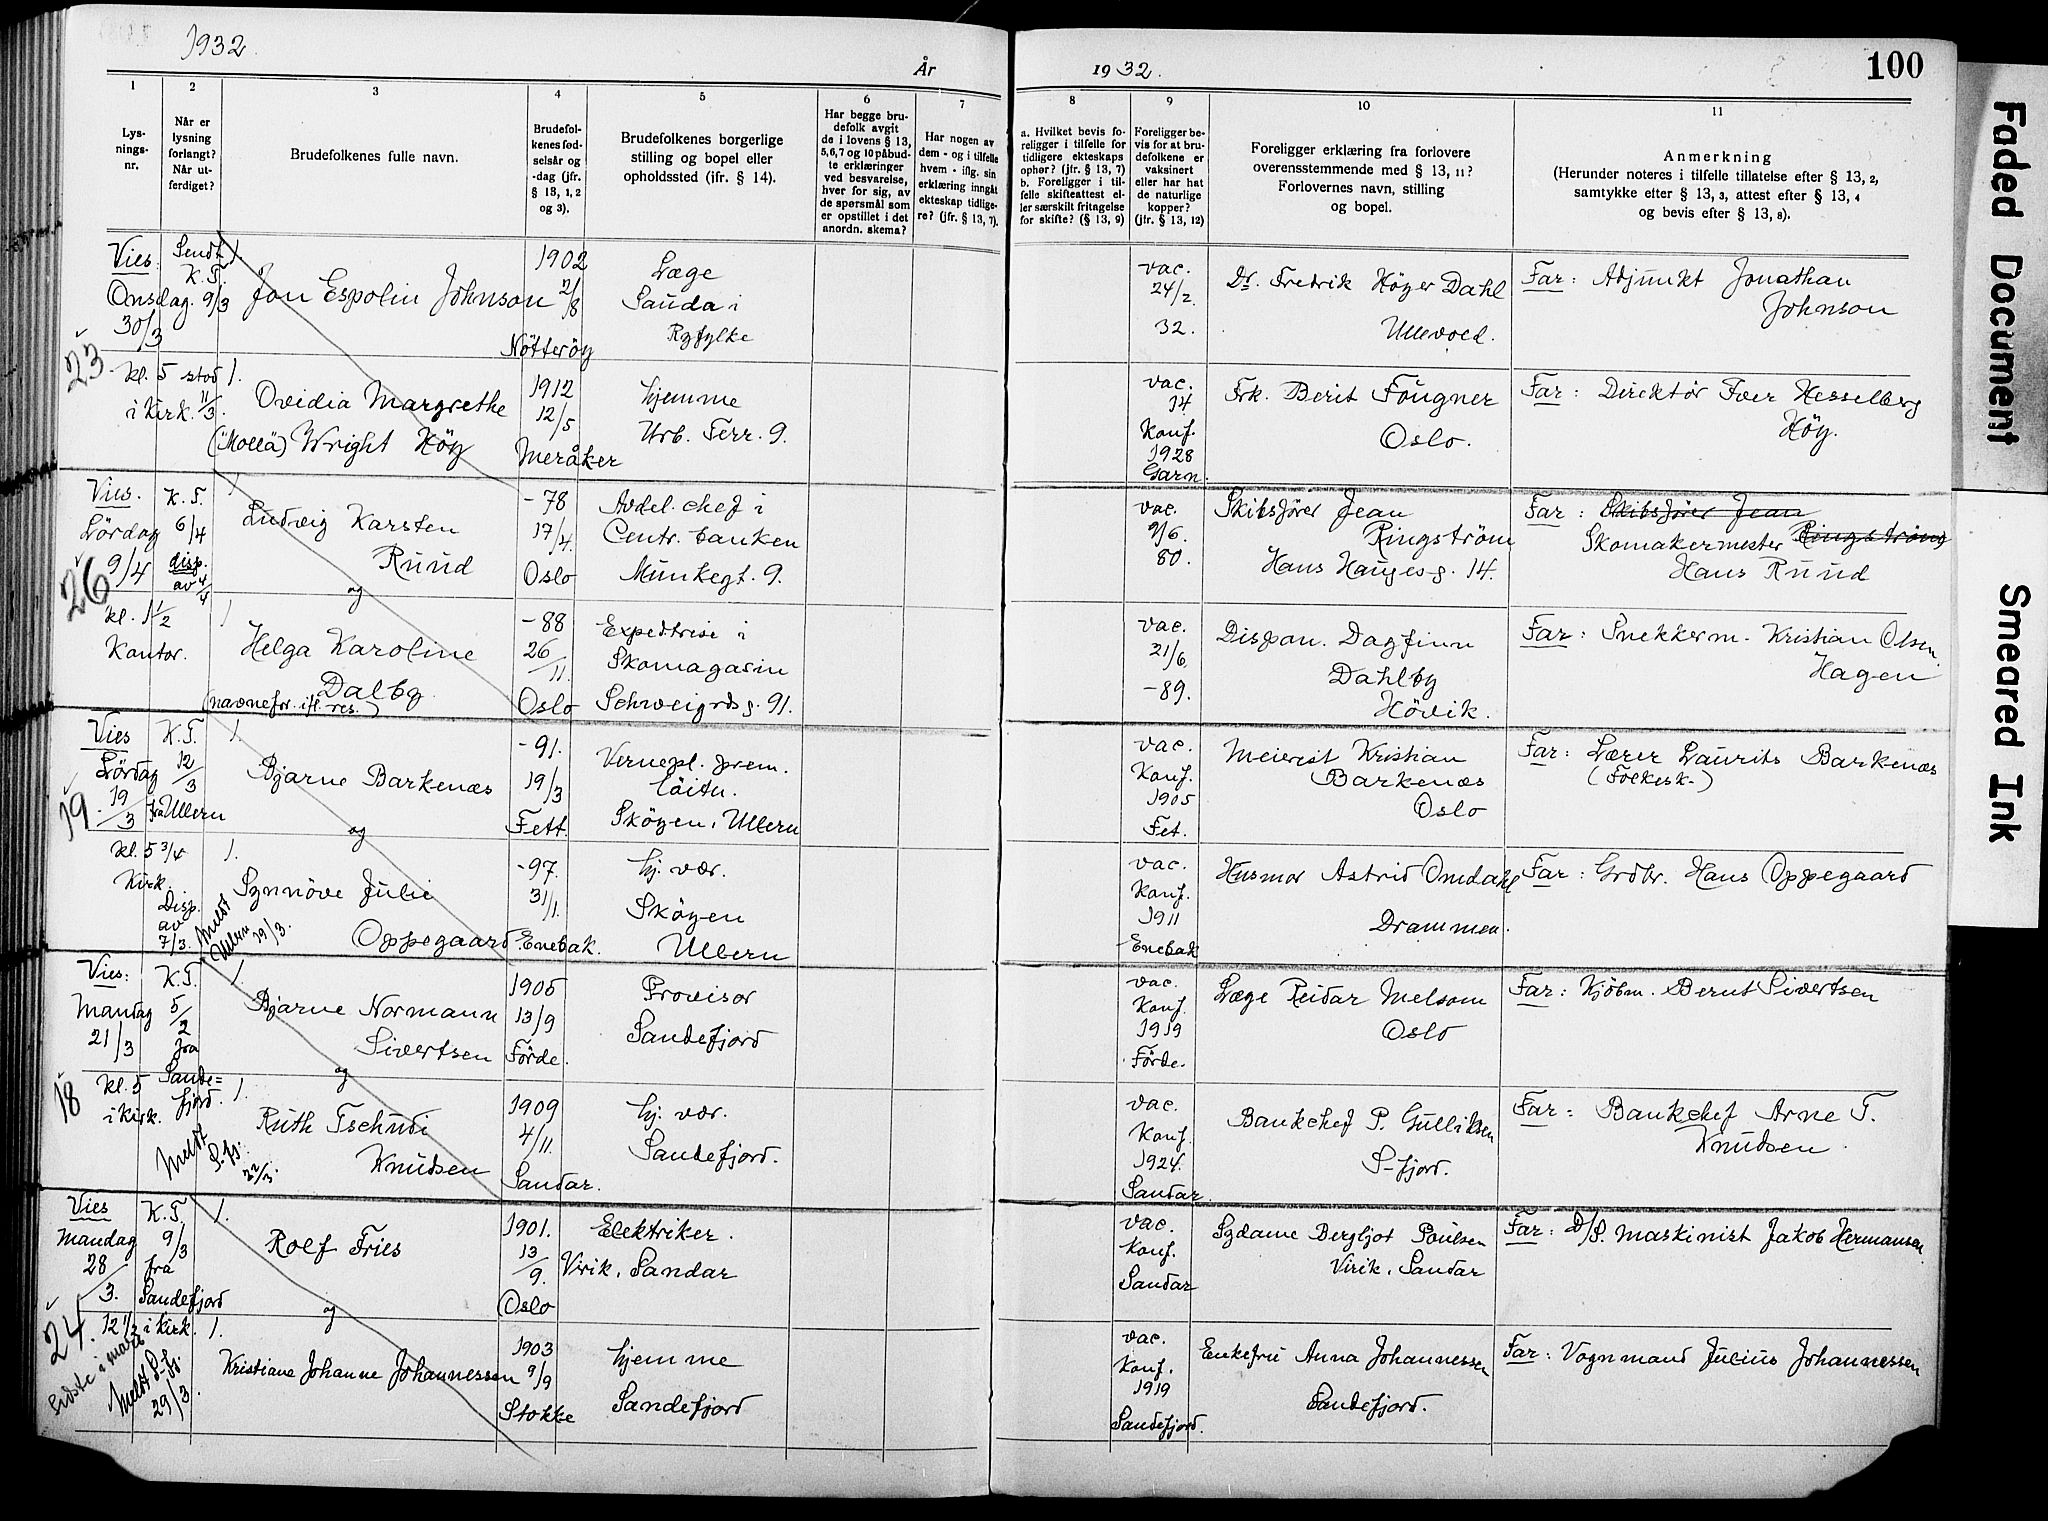 1932.
År
1932.
100
1
Lys-
nings-
nr.
2
Når er
lysning
forlangt?
Når ut-
ferdiget?
3
Brudefolkenes fulle navn.
4
Brudefol-
kenes fød-
selsår og
-dag (jfr.
§ 13, 1, 2
og 3).
5
Brudefolkenes borgerlige
stilling og bopel eller
opholdssted (ifr. § 14).
6
Har begge bru-
defolk avgit
de i lovens § 13,
5,6,7 og 10 påbud-
te erklæringer
ved besvarelse,
hver for sig, av
de spørsmål som
er opstillet i det
anordn. skema?
7
Har nogen av
dem - og i tilfelle
hvem - iflg. sin
erklæring inngåt
ekteskap tidlige-
re? (jfr. § 13, 7).
8
a. Hvilket bevis fo-
religger i tilfelle for
tidligere ekteskaps
ophør? (jfr. § 13, 7)
b. Foreligger i til-
felle skifteattest el-
ler særskilt fritagelse
for skifte? (§ 13, 9)
9
Foreligger be-
vis for at bru-
defolkene er
vaksinert
eller har hat
de naturlige
kopper?
(jfr. § 13, 12)
10
Foreligger erklæring fra forlovere
overensstemmende med § 13, 11?
Forlovernes navn, stilling
og bopel.
11
Anmerkning
(Herunder noteres i tilfelle tillatelse efter § 13, 2,
samtykke efter § 13, 3, attest efter § 13, 4
og bevis efter § 13, 8).
23
Vies:
Onsdag.
30/3
kl. 5
i Kirk.
Sendt
K.T.
9/3
stod
11/3.
1.
Jon Espolin Johnson
1902
2/8
Nötteröy
Læge
Sauda i
Ryfylke
vac.
24/2.
32.
Dr. Fredrik Höyer Dahl
Ullevoll.
Far: Adjunkt Jonathan
Johnson
1.
Ovidia Margrethe
("Mollä") Wright Höy
1912
12/5
Meråker
hjemme
Urb. Terr. 9.
vac.
14
Konf.
1928
Garn.
Frk. Berit Fougner
Oslo.
Far: Direktör Iver Hesselberg
Höy.
26
Vies.
Lördag
9/4
kl. 1 1/2
Kontor.
K.T.
6/4
disp.
av 4/4
1
Ludvig Karsten
Ruud
og
-78
17/4.
Oslo
Avdel. chef i
Centr. banken
Munkegt. 9.
vac.
9/6.
80.
Skibsfører Jean
Ringström
Hans Haugesg. 14.
Far: Skibsfører Jean
Ringström
Skomakermester
Hans Ruud
1
Helga Karoline
Dalby
(navnefor. ifl. res.)
-88
26/11.
Oslo
Expeditrise i
Skomagasin
Schweigrds g. 91.
vac.
21/6.
-89.
Dispon. Dagfinn
Dahlby
Hövik.
Far: Snekkerm. Kristian Olsen
Hagen
19
Vies
Lördag
19/3
kl. 5 3/4
Kirk.
K.T.
12/3
fra Ullern
Disp.
av
7/3.
Meldt
Ullern 19/3.
1.
Bjarne Barkenæs
og
-91.
19/3
Fett.
Vernepl. prem.
löitn.
Sköyen, Ullern
vac.
Konf.
1905
Fet.
Meierist Kristian
Barkenæs
Oslo
Far: Lærer Laurits Barkenæs
(Folkesk.)
1.
Synnöve Julie
Oppegaard
-97.
31/1.
Enebak.
hj. vær.
Sköyen
Ullern
vac.
Konf.
1911
Enebak
Husmor Astrid Omdahl
Drammen.
Far: Grdbr. Hans Oppegaard
18
Vies:
Mandag
21/3
kl. 5
i Kirk.
K.T.
5/2
fra
Sande=
fjord.
Meldt
S.fj.
22/3.
1.
Bjarne Normann
Sivertsen
og
1905
13/9
Förde.
Provisor
Sandefjord
vac.
Konf.
1919
Förde.
Læge Reidar Melsom
Oslo
Far: Kjöbm. Bernt Sivertsen
1.
Ruth Tschudi
Knudsen
1909
4/11.
Sandar.
hj. vær.
Sandefjord.
vac.
Konf.
1924.
Sandar
Bankchef P. Gulliksen
S-fjord.
Far: Bankchef Arne T.
Knudsen.
24.
Vies
Mandag
28/3.
12 1/2 i Kirk.
Sidste i mars
Meldt S.fj.
29/3.
K.T.
9/3
fra
Sandefjord
1.
Rolf Fries
og
1901.
13/9.
Oslo
Elektriker.
Virik, Sandar
vac.
Konf.
Sandar
Sydame Bergljot Poulsen
Virik, Sandar
Far: D/S. maskinist Jakob Hermansen
1.
Kristiane Johanne Johannessen
1903
9/9
Stokke
hjemme
Sandefjord
vac.
Konf.
1919
Sandefjord.
Enkefru Anna Johannessen
Sandefjord.
Far: Vognmand Julius Johannessen
Faded Document
Smeared Ink